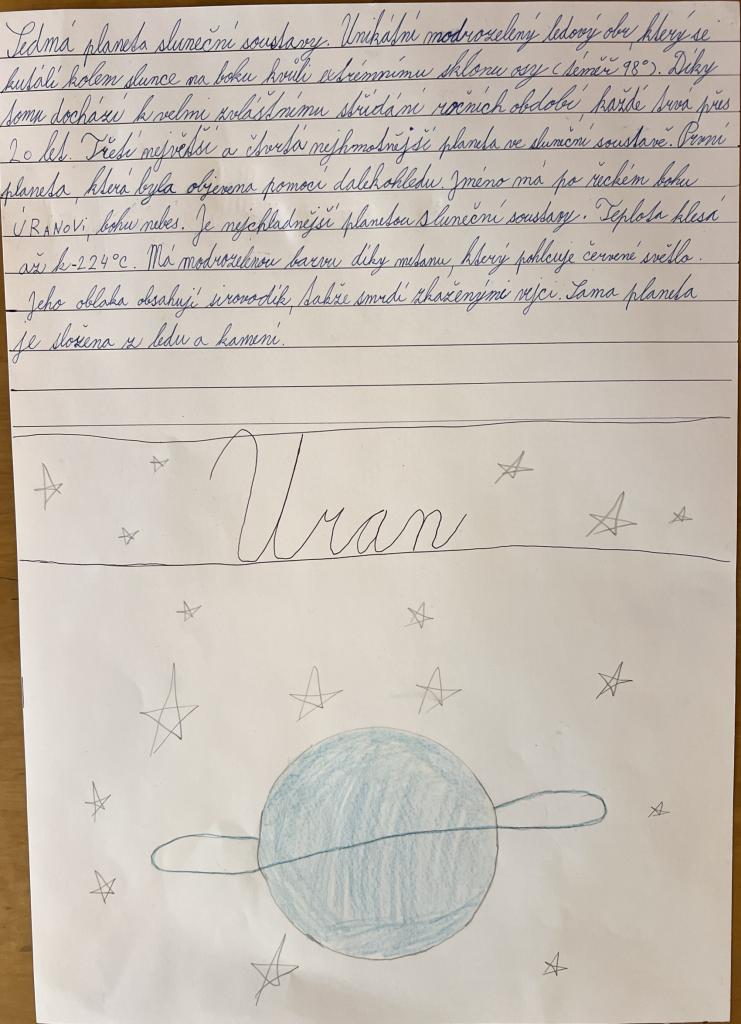 Sedmá planeta sluneční soustavy. Unikátní modrozelený ledový obr, který se
kutálí kolem slunce na boku kvůli extrémnímu sklonu osy (téměř 98°). Díky
tomu dochází k velmi zvláštnímu střídání ročních období, každé trva přes
20 let. Třetí největší a čtvrtá nejhmotnější planeta ve sluneční soustavě. První
planeta, která byla objevena pomocí dalekohledu. Jméno má po řeckém bohu
ÚRANOVi, bohu nebes. Je nejchladnější planetou sluneční soustavy. Teplota klesá
až k -224°C. Má modrozelenou barvu díky metanu, který pohlcuje červené světlo.
Jeho oblaka obsahují sirovodík, takže smrdí zkaženými vejci. Sama planeta
je složena z ledu a kamení.
Uran